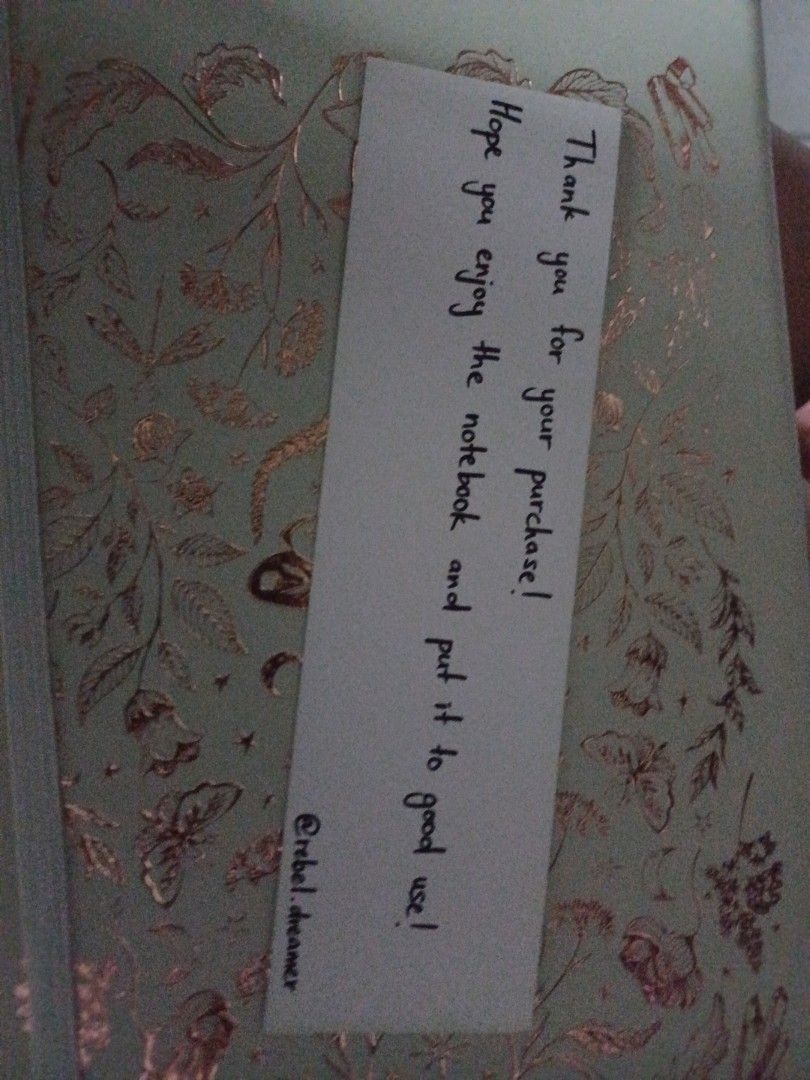 Thank you for your purchase!
Hope you enjoy the notebook and put it to good use!
@rebel.dreamer